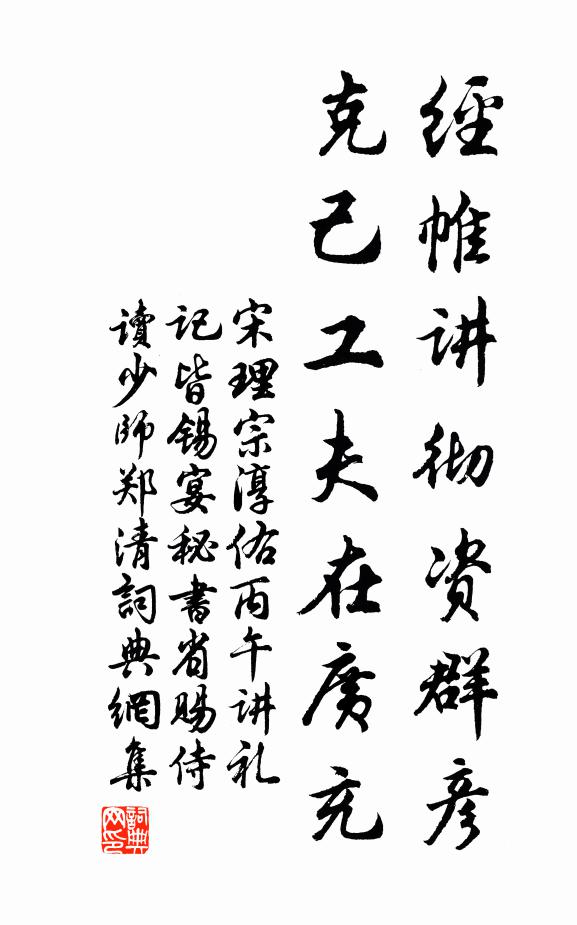 經帷讲彻资群彦
克己工夫在廣充
宋理宗淳佑丙午讲礼
记皆锡宴秘書省赐侍
讀少师郑清詞典網集
詞典网印